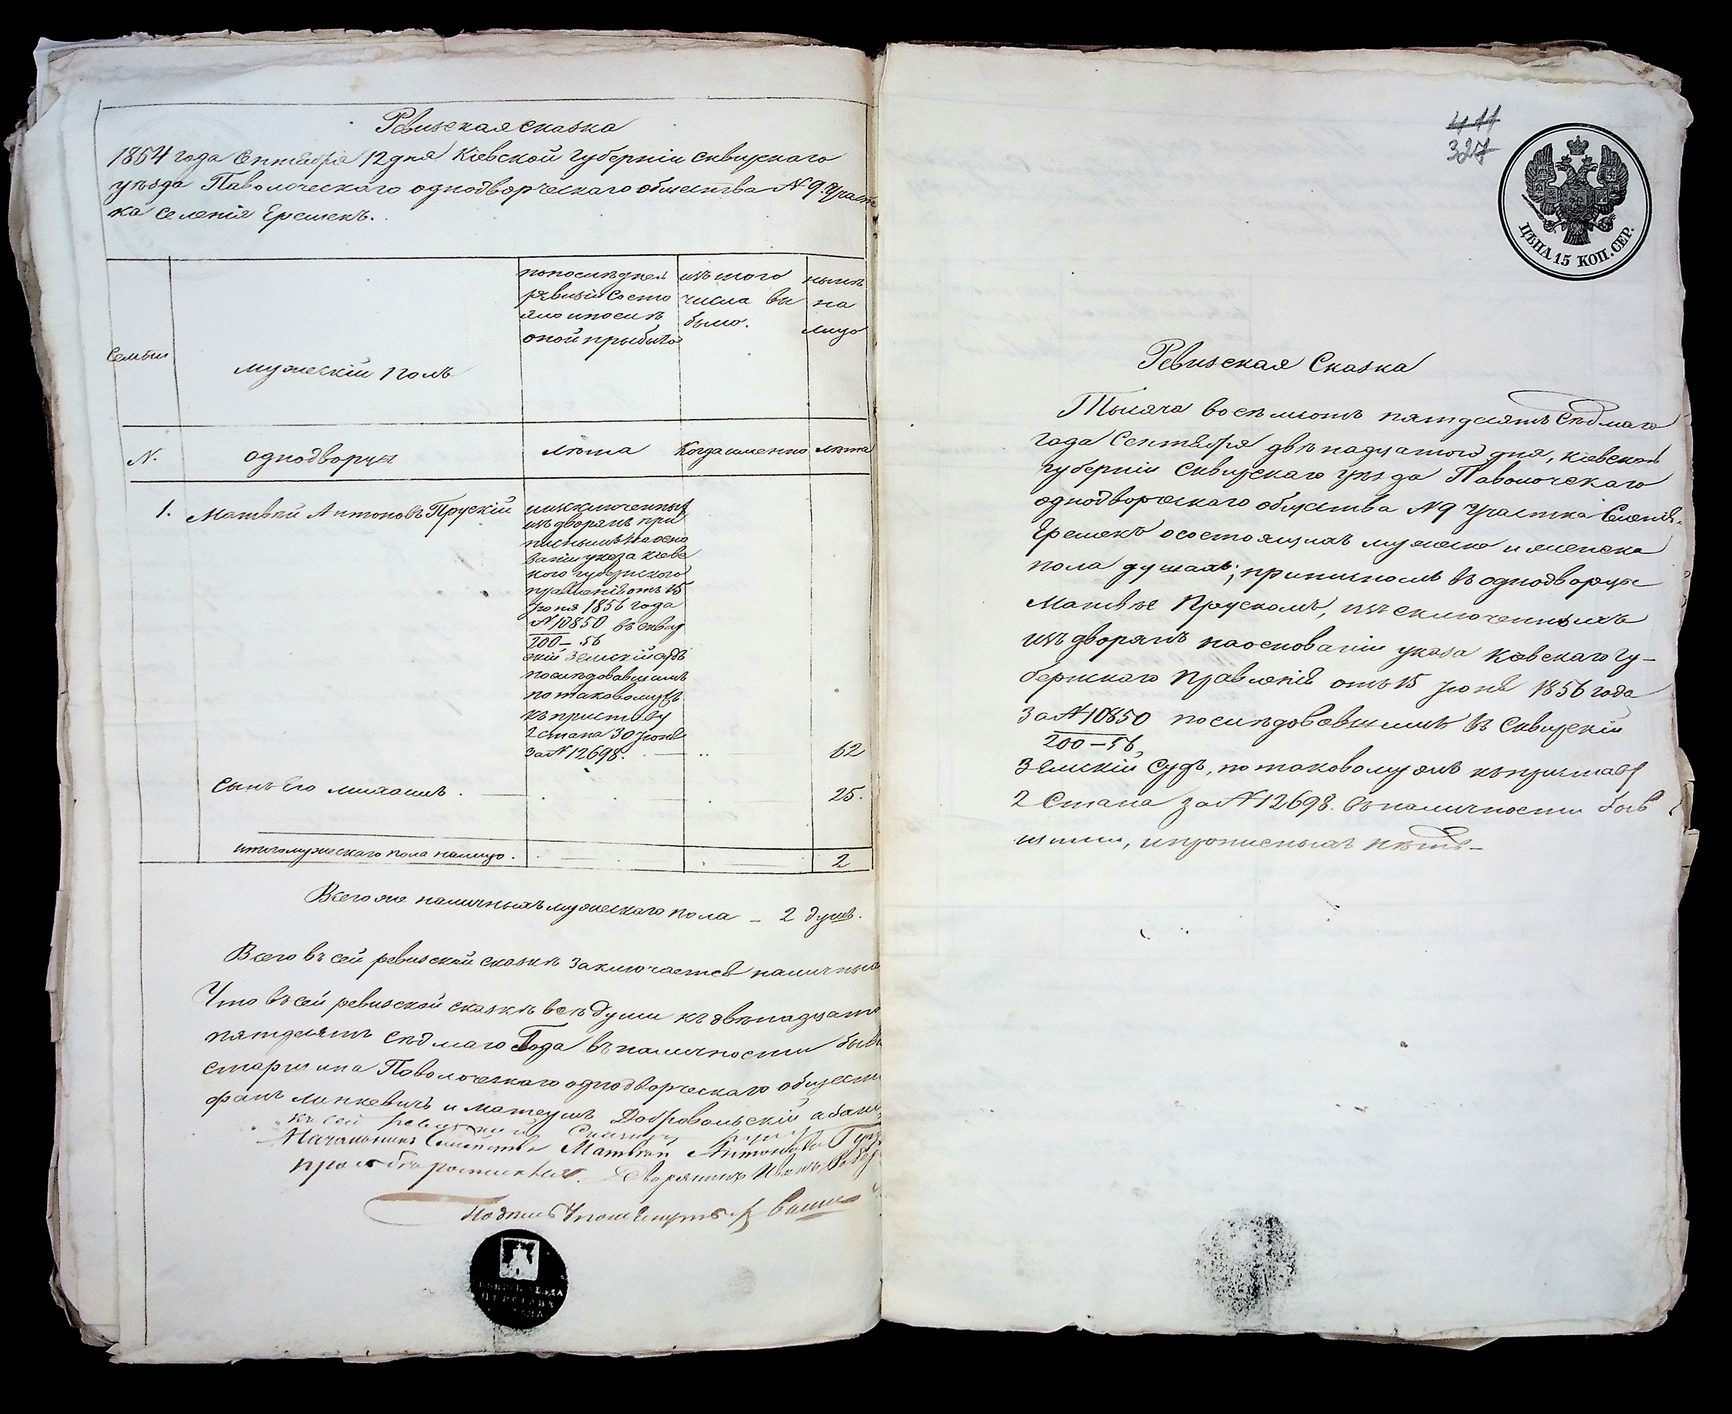 Ревизская сказка
1854 года Сентября 12 дня Кіевской губерніи Сквирскаго
уѣзда Паволоческаго однодворческаго общества N 9 Участ
ка селенія Ерешекъ.
Семьи
мужескій полъ
попоследней
ревизіи состо
яло и послѣ
оной прибыло
изъ того
числа вы
было.
нынѣ
на
лицо
N.
однодворцы
лѣта
Когда именно
лѣта
1.
Матвей Антоновъ Прускій
изъ дворянъ при
ваніи указа кіевс
кого губернского
правленія отъ 15
Іюня 1856 года
N 10850 въ сквир
200–56
скій Земскій судъ
последовавшимъ
по таковомужъ
къ приставу
2 стана 30 Іюня
за N 12698.
62
сынъ Его михаилъ.
25.
итого мужескаго пола налицо.
2
Всего же наличныхъ мужескаго пола – 2 душъ.
Всего въ сей ревизской сказкѣ заключается наличных
Что въ сей ревизской сказкѣ всѣ души къ двѣнадцато
пятдесятъ седмаго Года въ наличности бывш
старшина Паволоческаго однодворческаго общест
линкевичъ и матеушъ Добровольскій
къ сей ревизской Сказкѣ
Начальникъ Семейства Матвей Антоновъ
Дворянинъ Иванъ
411
327
ЦѢНА 15 КОП. СЕР.
Ревизская Сказка
Тысяча восемьсотъ пятдесятъ Седмаго
года Сентября двѣнадцатого дня, кіевской
губерніи Сквирскаго уѣзда Паволочскаго
однодворческаго общества N 9 Участка Селенія
Ерешекъ о состоящихъ мужеска и женска
пола душахъ; приписномъ въ однодворцы
Матвѣе Прускомъ, изъ сключенныхъ
изъ дворянъ на основаніи указа Кіевскаго Гу–
бернскаго Правленія отъ 15 Іюня 1856 года
за N 10850 последовавшимъ въ Сквирскій
200–56
Земскій Судъ, по таковому жъ къ приставу
2 Стана за N 12698. въ наличности быв
шими, и прописныхъ нѣтъ –